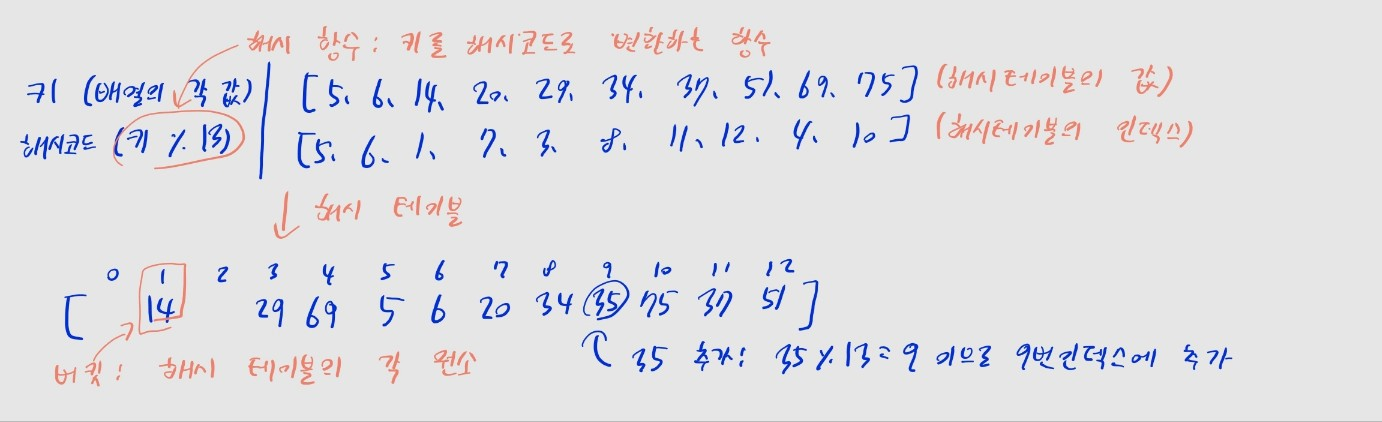 해시 함수 : 키를 해시코드로 변환하는 함수
키 (배열의 각 값) [5, 6, 14, 20, 29, 34, 37, 51, 69, 75] (해시테이블의 값)
해시코드 (키 % 13) [5, 6, 1, 7, 3, 8, 11, 12, 4, 10] (해시테이블의 인덱스)
↓ 해시 테이블
0 1 2 3 4 5 6 7 8 9 10 11 12
[ 14 29 69 5 6 20 34 35 75 37 51 ]
버킷 : 해시 테이블의 각 원소
35 추가 : 35 % 13 = 9 이므로 9번 인덱스에 추가